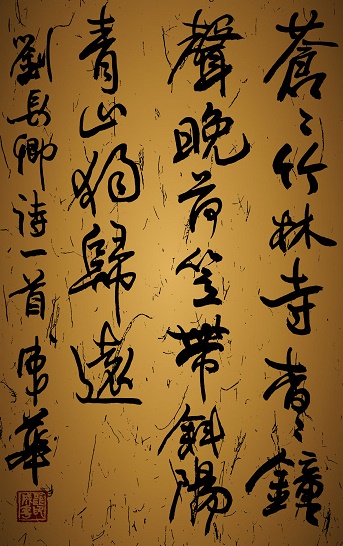 蒼々竹林寺杳々鐘
聲晚荷笠帶斜陽
青山獨歸遠
劉長卿詩一首